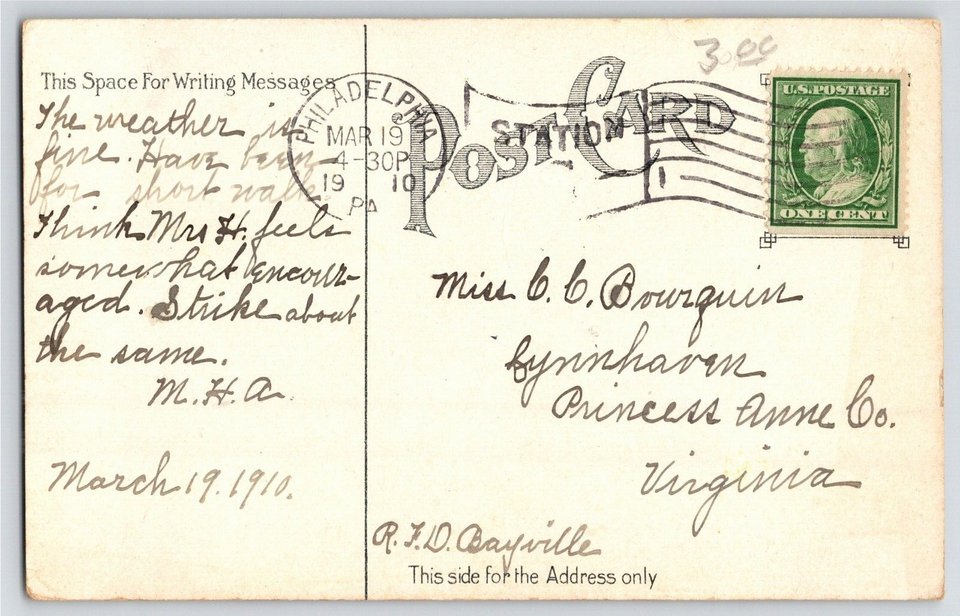 This Space For Writing Messages
The weather is
fine. Have been
for short walk.
Think Mrs H. feels
somewhat encour-
aged. Strike about
the same.
M. H. A.
March 19. 1910.
3.00
POST CARD
PHILADELPHIA
MAR 19
4-30P
19 10
PA
STATION
1
U.S. POSTAGE
ONE CENT
Miss C. C. Bourquin
Lynnhaven
Princess Anne Co.
Virginia
R. F. D. Bayville
This side for the Address only